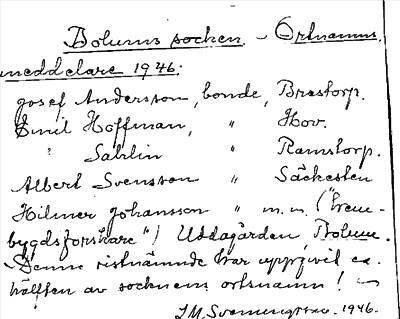 Bolums socken. – Ortnamns
meddelare 1946:
Josef Andersson, bonde, Brestorp.
Emil Hoffman, " Hov.
" Sahlin " Ramstorp.
Albert Svensson " Säckesten
Hilmer Johansson " m.m. ("hem-
bygdsforskare") Uddagården Bolum.
Denne sistnämnde har uppgivit ca.
hälften av socknens ortnamn! –
1946.